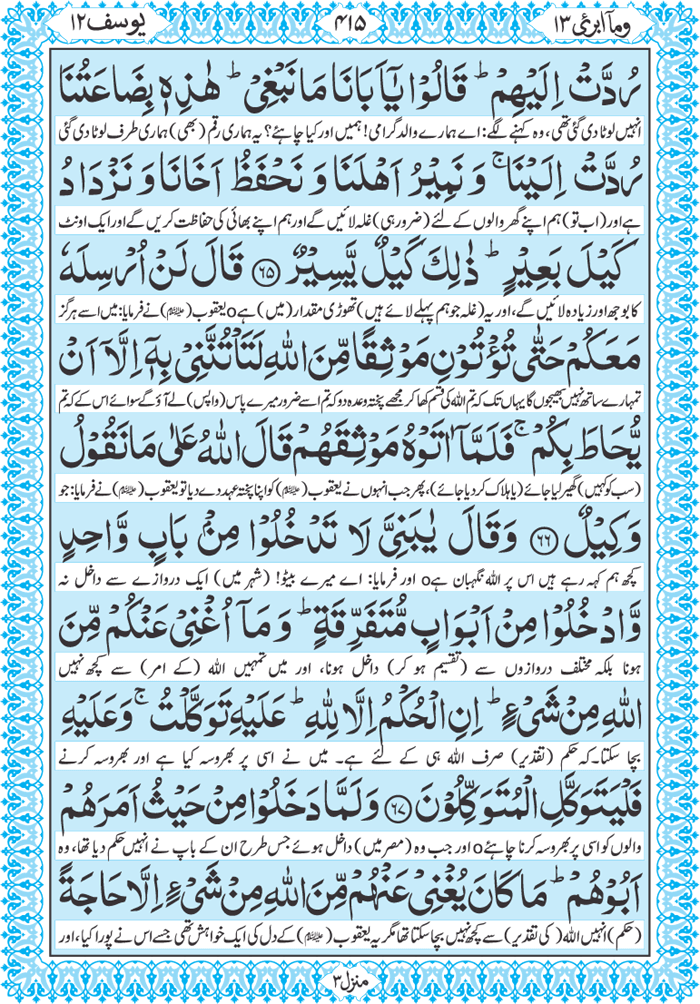 یوسف ۱۲ ۴۱۵ ومآ ابرئ ۱۳
رُدَّتْ اِلَیْهِمْ ؕ قَالُوْا یٰۤاَبَانَا مَا نَبْغِیْ ؕ هٰذِهٖ بِضَاعَتُنَا
انہیں لوٹا دی گئی تھی، وہ کہنے لگے: اے ہمارے والد گرامی! ہمیں اور کیا چاہئے؟ یہ ہماری رقم (بھی) ہماری طرف لوٹا دی گئی
رُدَّتْ اِلَیْنَا ۚ وَ نَمِیْرُ اَهْلَنَا وَ نَحْفَظُ اَخَانَا وَ نَزْدَادُ
ہے اور (اب تو) ہم اپنے گھر والوں کے لئے (ضرور ہی) غلہ لائیں گے اور ہم اپنے بھائی کی حفاظت کریں گے اور ایک اونٹ
كَیْلَ بَعِیْرٍ ؕ ذٰلِكَ كَیْلٌ یَّسِیْرٌ ۶۵ قَالَ لَنْ اُرْسِلَهٗ
کا بوجھ اور زیادہ لائیں گے، اور یہ (غلہ جو ہم پہلے لائے ہیں) تھوڑی مقدار (میں) ہےo یعقوب (علیہ السلام) نے فرمایا: میں اسے ہرگز
مَعَكُمْ حَتّٰى تُؤْتُوْنِ مَوْثِقًا مِّنَ اللّٰهِ لَتَاْتُنَّنِیْ بِهٖۤ اِلَّاۤ اَنْ
تمہارے ساتھ نہیں بھیجوں گا یہاں تک کہ تم اللہ کی قسم کھا کر مجھے پختہ وعدہ دو کہ تم اسے ضرور میرے پاس (واپس) لے آؤ گے سوائے اس کے کہ تم
یُّحَاطَ بِكُمْ ۚ فَلَمَّاۤ اٰتَوْهُ مَوْثِقَهُمْ قَالَ اللّٰهُ عَلٰى مَا نَقُوْلُ
(سب کو کہیں) گھیر لیا جائے (یا ہلاک کر دیا جائے)، پھر جب انہوں نے یعقوب (علیہ السلام) کو اپنا پختہ عہد دے دیا تو یعقوب (علیہ السلام) نے فرمایا: جو
وَكِیْلٌ ۶۶ وَقَالَ یٰبَنِیَّ لَا تَدْخُلُوْا مِنْۢ بَابٍ وَّاحِدٍ
کچھ ہم کہہ رہے ہیں اس پر اللہ نگہبان ہےo اور فرمایا: اے میرے بیٹو! (شہر میں) ایک دروازے سے داخل نہ
وَّادْخُلُوْا مِنْ اَبْوَابٍ مُّتَفَرِّقَةٍ ؕ وَ مَاۤ اُغْنِیْ عَنْكُمْ مِّنَ
ہونا بلکہ مختلف دروازوں سے (تقسیم ہو کر) داخل ہونا، اور میں تمہیں اللہ (کے امر) سے کچھ نہیں
اللّٰهِ مِنْ شَیْءٍ ؕ اِنِ الْحُكْمُ اِلَّا لِلّٰهِ ؕ عَلَیْهِ تَوَكَّلْتُ ۚ وَعَلَیْهِ
بچا سکتا۔ کہ حکم (تقدیر) صرف اللہ ہی کے لئے ہے۔ میں نے اسی پر بھروسہ کیا ہے اور بھروسہ کرنے
فَلْیَتَوَكَّلِ الْمُتَوَكِّلُوْنَ ۶۷ وَلَمَّا دَخَلُوْا مِنْ حَیْثُ اَمَرَهُمْ
والوں کو اسی پر بھروسہ کرنا چاہئےo اور جب وہ (مصر میں) داخل ہوئے جس طرح ان کے باپ نے انہیں حکم دیا تھا، وہ
اَبُوْهُمْ ؕ مَا كَانَ یُغْنِیْ عَنْهُمْ مِّنَ اللّٰهِ مِنْ شَیْءٍ اِلَّا حَاجَةً
(حکم) انہیں اللہ (کی تقدیر) سے کچھ نہیں بچا سکتا تھا مگر یہ یعقوب (علیہ السلام) کے دل کی ایک خواہش تھی جسے اس نے پورا کیا، اور
منزل ۳